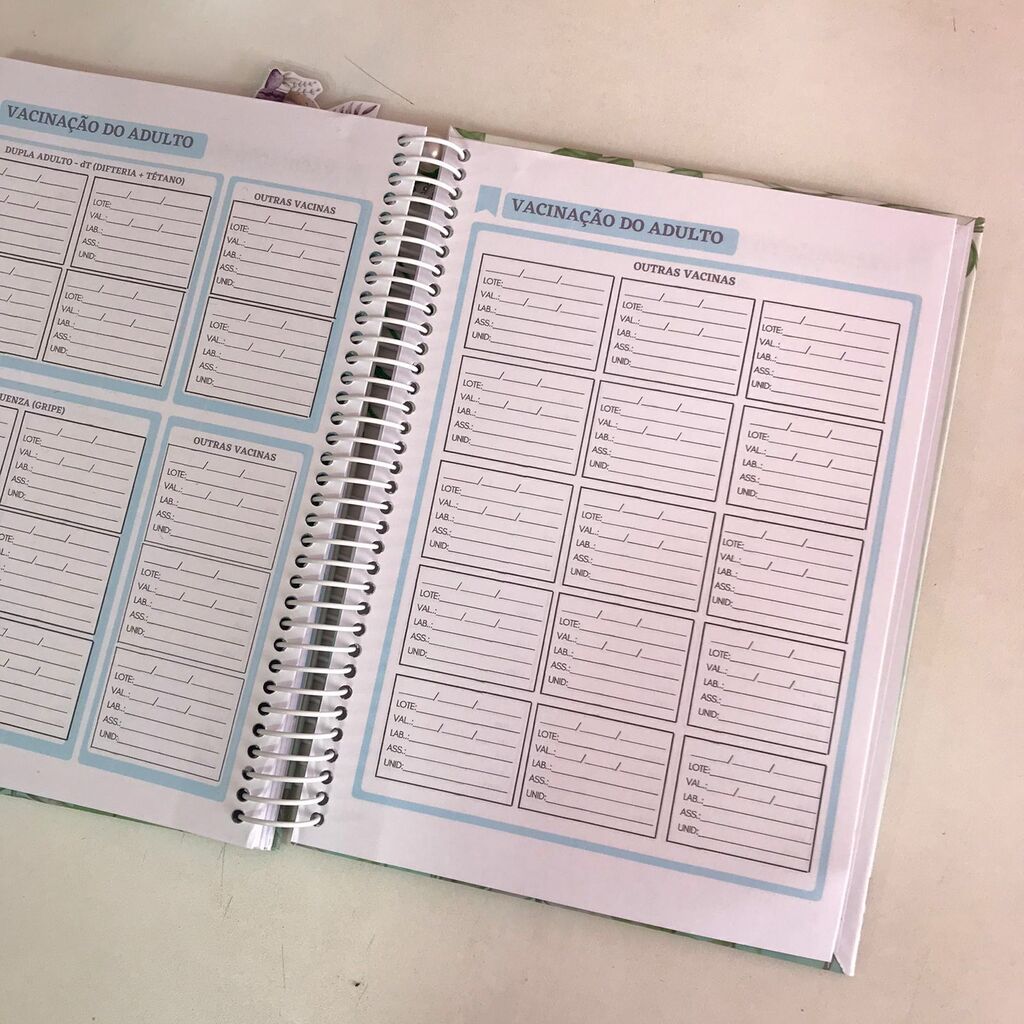 VACINAÇÃO DO ADULTO
DUPLA ADULTO - dT (DIFTERIA + TÉTANO)
LOTE:
VAL.:
LAB.:
ASS.:
UNID:
LOTE:
VAL.:
LAB.:
ASS.:
UNID:
OUTRAS VACINAS
LOTE:
VAL.:
LAB.:
ASS.:
UNID:
LOTE:
VAL.:
LAB.:
ASS.:
UNID:
UENZA (GRIPE)
LOTE:
VAL.:
LAB.:
ASS.:
UNID:
OUTRAS VACINAS
LOTE:
VAL.:
LAB.:
ASS.:
UNID:
LOTE:
VAL.:
LAB.:
ASS.:
UNID:
LOTE:
VAL.:
LAB.:
ASS.:
UNID:
VACINAÇÃO DO ADULTO
OUTRAS VACINAS
LOTE:
VAL.:
LAB.:
ASS.:
UNID:
LOTE:
VAL.:
LAB.:
ASS.:
UNID:
LOTE:
VAL.:
LAB.:
ASS.:
UNID:
LOTE:
VAL.:
LAB.:
ASS.:
UNID:
LOTE:
VAL.:
LAB.:
ASS.:
UNID:
LOTE:
VAL.:
LAB.:
ASS.:
UNID:
LOTE:
VAL.:
LAB.:
ASS.:
UNID:
LOTE:
VAL.:
LAB.:
ASS.:
UNID:
LOTE:
VAL.:
LAB.:
ASS.:
UNID:
LOTE:
VAL.:
LAB.:
ASS.:
UNID:
LOTE:
VAL.:
LAB.:
ASS.:
UNID:
LOTE:
VAL.:
LAB.:
ASS.:
UNID:
LOTE:
VAL.:
LAB.:
ASS.:
UNID:
LOTE:
VAL.:
LAB.:
ASS.:
UNID:
LOTE:
VAL.:
LAB.:
ASS.:
UNID: